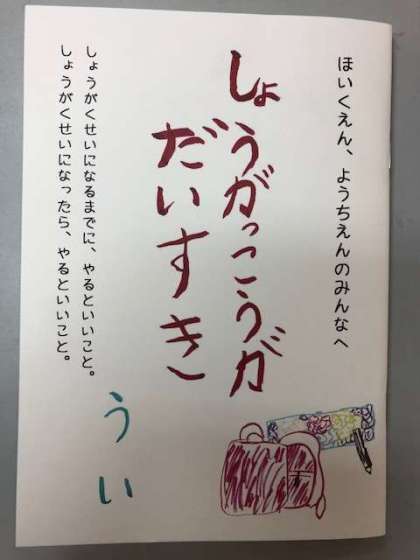 ほいくえん、ようちえんのみんなへ
しょうがっこうが
だいすき
しょうがくせいになるまでに、やるといいこと。
しょうがくせいになったら、やるといいこと。
うい